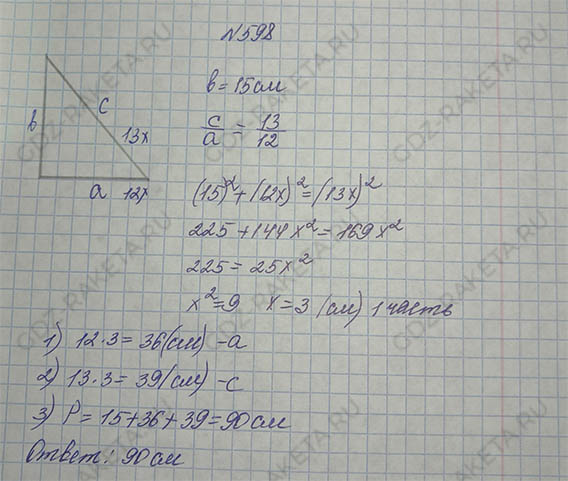 №598
b = 15 см
c/a = 13/12
b
c
13x
a 12x
(15)² + (12x)² = (13x)²
225 + 144x² = 169x²
225 = 25x²
x² = 9 x = 3 (см) 1 часть
1) 12·3 = 36 (см) - a
2) 13·3 = 39 (см) - c
3) P = 15 + 36 + 39 = 90 см
Ответ: 90 см
GDZ-RAKETA.RU